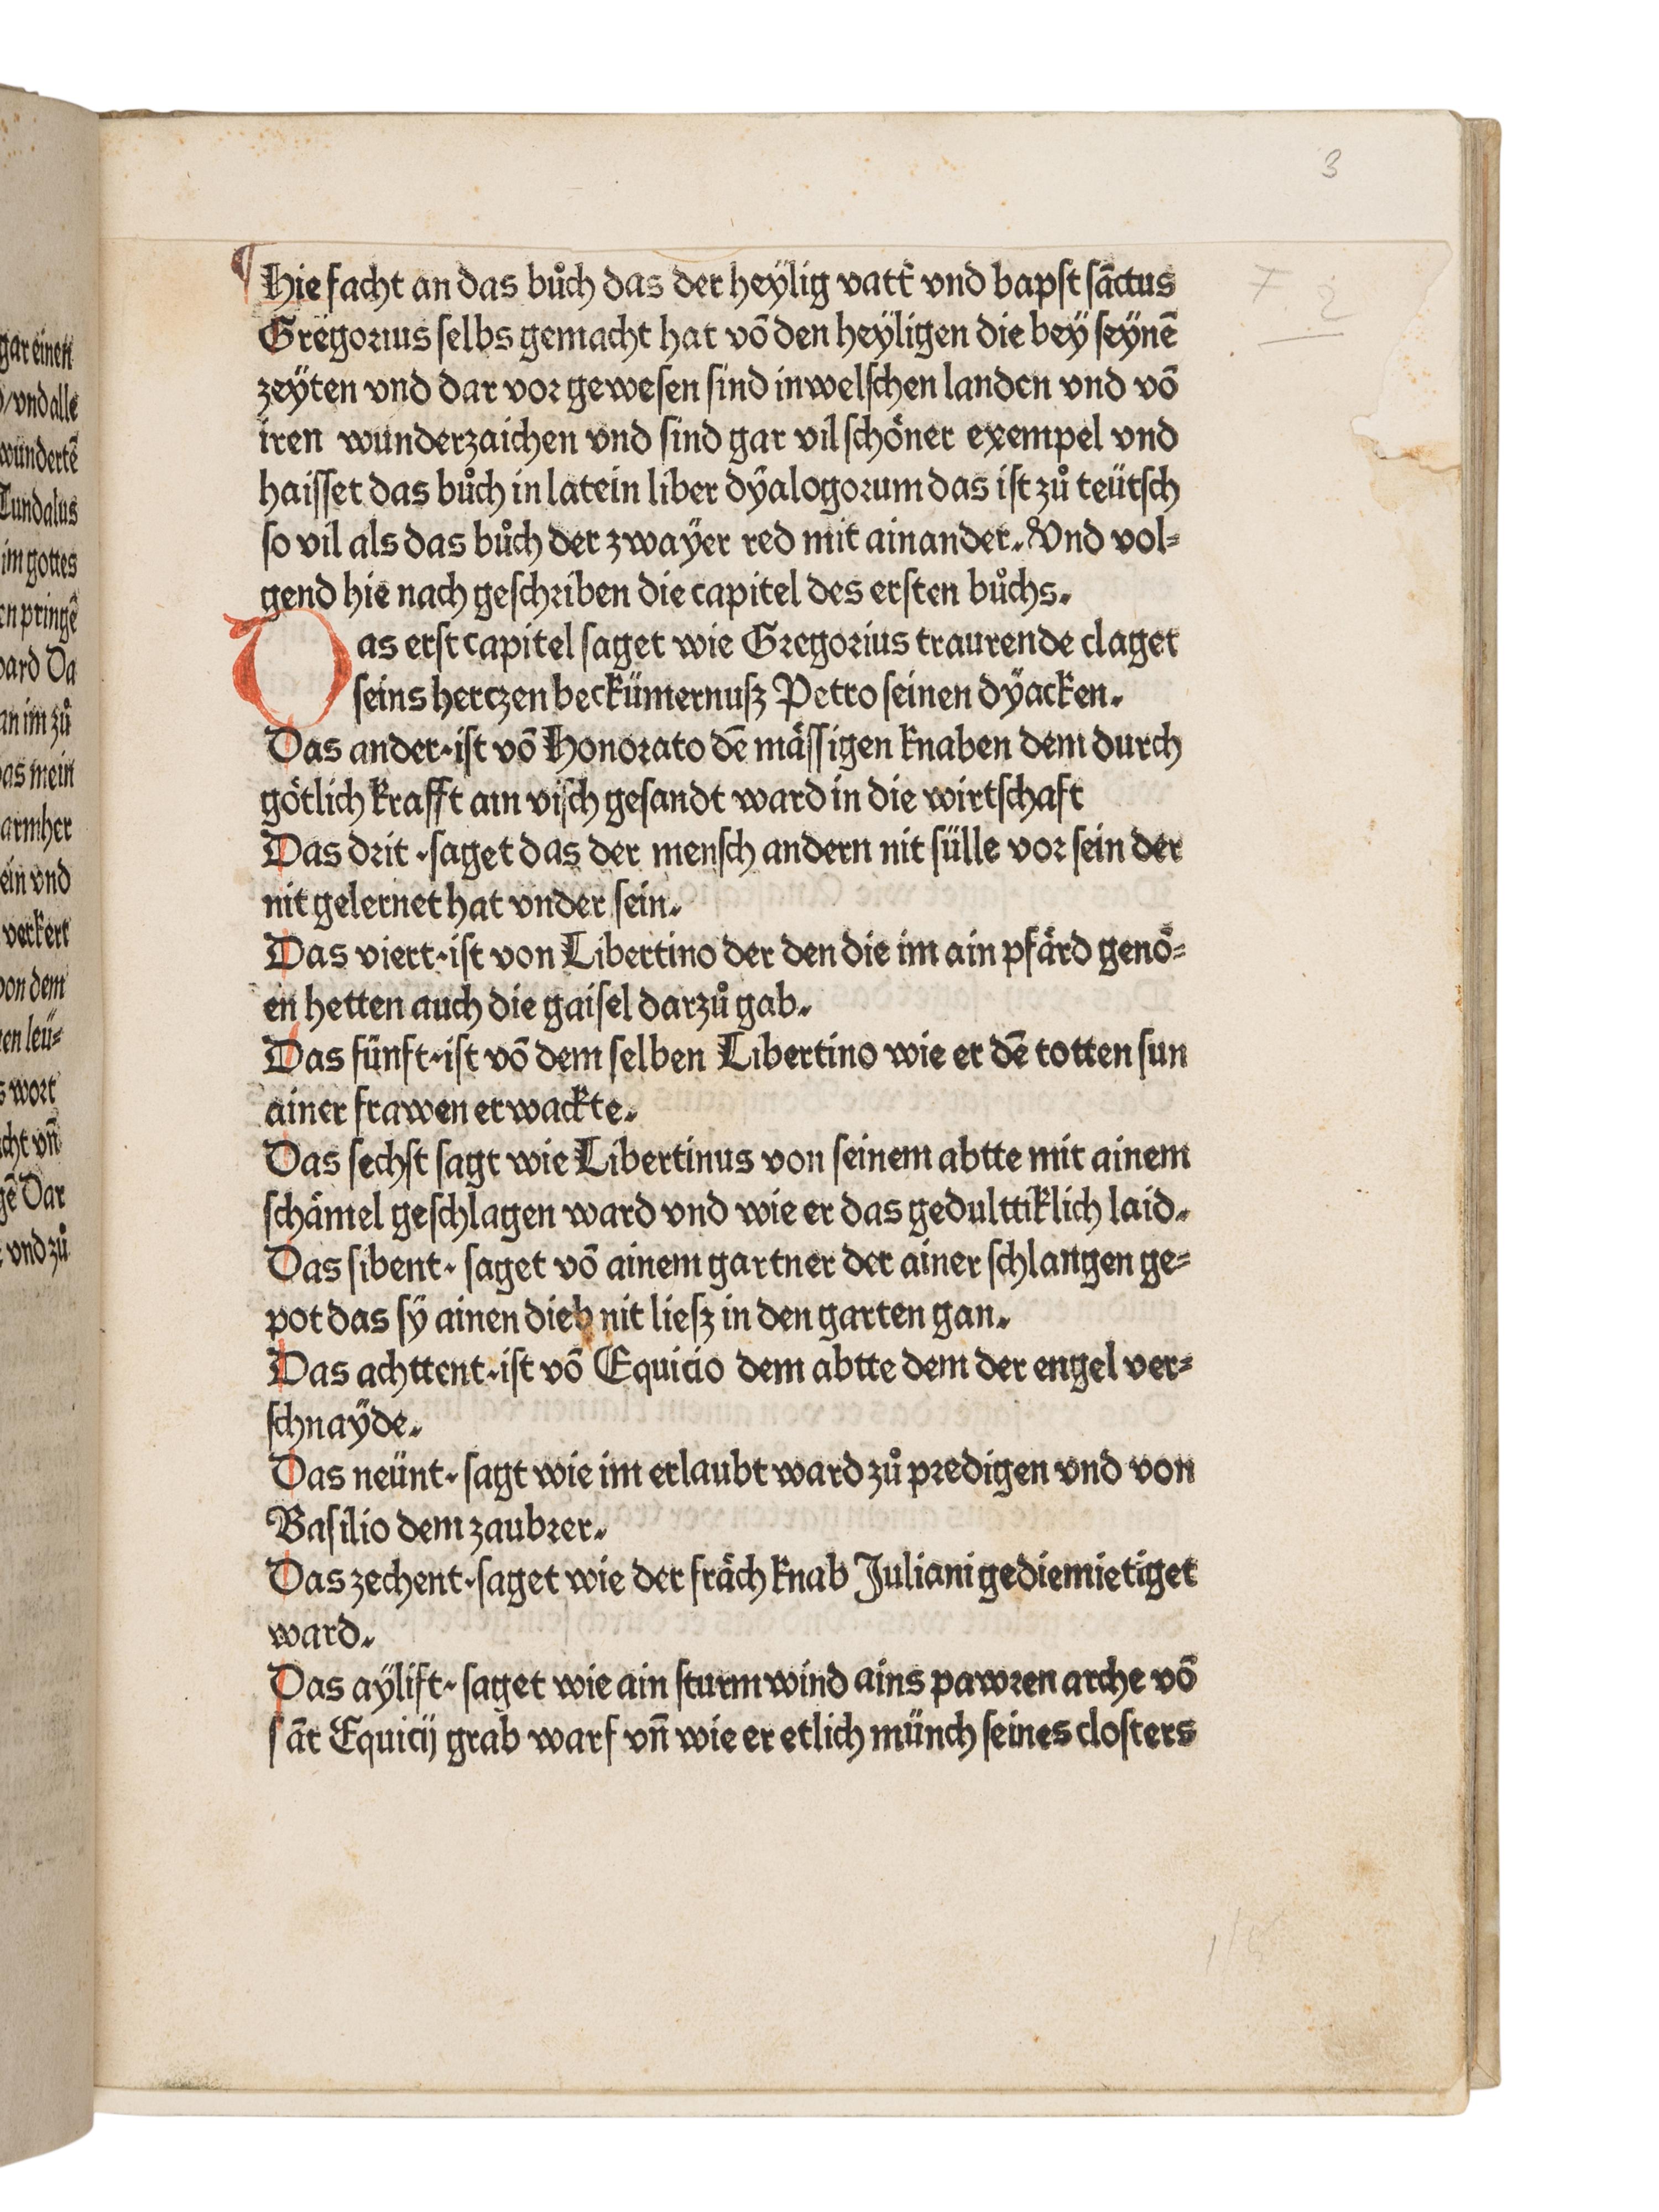 3
¶ Hie facht an das bůch das der heÿlig vatt̄ vnd bapst sāctus
Gregorius selbs gemacht hat vō den heÿligen die beÿ seÿnē
zeÿten vnd dar vor gewesen sind in welschen landen vnd vō
iren wunderzaichen vnd sind gar vil schöner exempel vnd
haisset das bůch in latein liber dÿalogorum das ist zů teütsch
so vil als das bůch der zwaÿer red mit ainander. Vnd vol⸗
gend hie nach geschriben die capitel des ersten bůchs.
Das erst capitel saget wie Gregorius traurende claget
seins hertzen beckümernusz Petro seinen dÿacken.
Das ander. ist vō Honorato dē mässigen knaben dem durch
götlich krafft ain visch gesandt ward in die wirtschaft
Das drit. saget das der mensch andern nit sülle vor sein der
nit gelernet hat vnder sein.
Das viert. ist von Libertino der den die im ain pfärd genō⸗
en hetten auch die gaisel darzů gab.
Das fünft. ist vō dem selben Libertino wie er dē totten sun
ainer frawen erwackte.
Das sechst sagt wie Libertinus von seinem abtte mit ainem
schämel geschlagen ward vnd wie er das gedulttiklich laid.
Das sibent. saget vō ainem gartner der ainer schlangen ge⸗
pot das sÿ ainen dieb nit liesz in den garten gan.
Das achttent. ist vō Equicio dem abtte dem der engel ver⸗
schnaÿde.
Das neünt. sagt wie im erlaubt ward zů predigen vnd von
Basilio dem zaubrer.
Das zechent. saget wie der fräch knab Juliani gediemietiget
ward.
Das aÿlift. saget wie ain sturm wind ains pawren arche vō
sāt Equicij grab warf vn̄ wie er etlich münch seines closters
gar einen
vnd alle
wunderte
Tundalus
im gottes
en pringē
ward Da
an im zů
das mein
armher
ein vnd
verkert
von dem
en leü⸗
s wort
cht vn̄
gē Dar
vnd zů